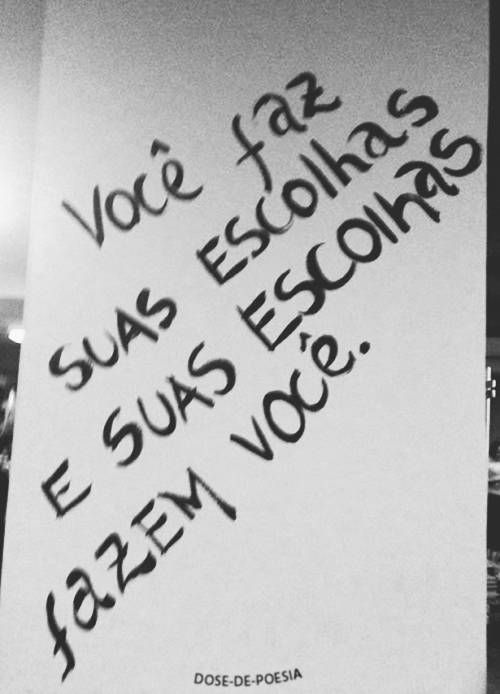 Você faz
SUAS ESCOlhas
E SUAS ESCOlhas
fazEM VOCÊ.
DOSE-DE-POESIA